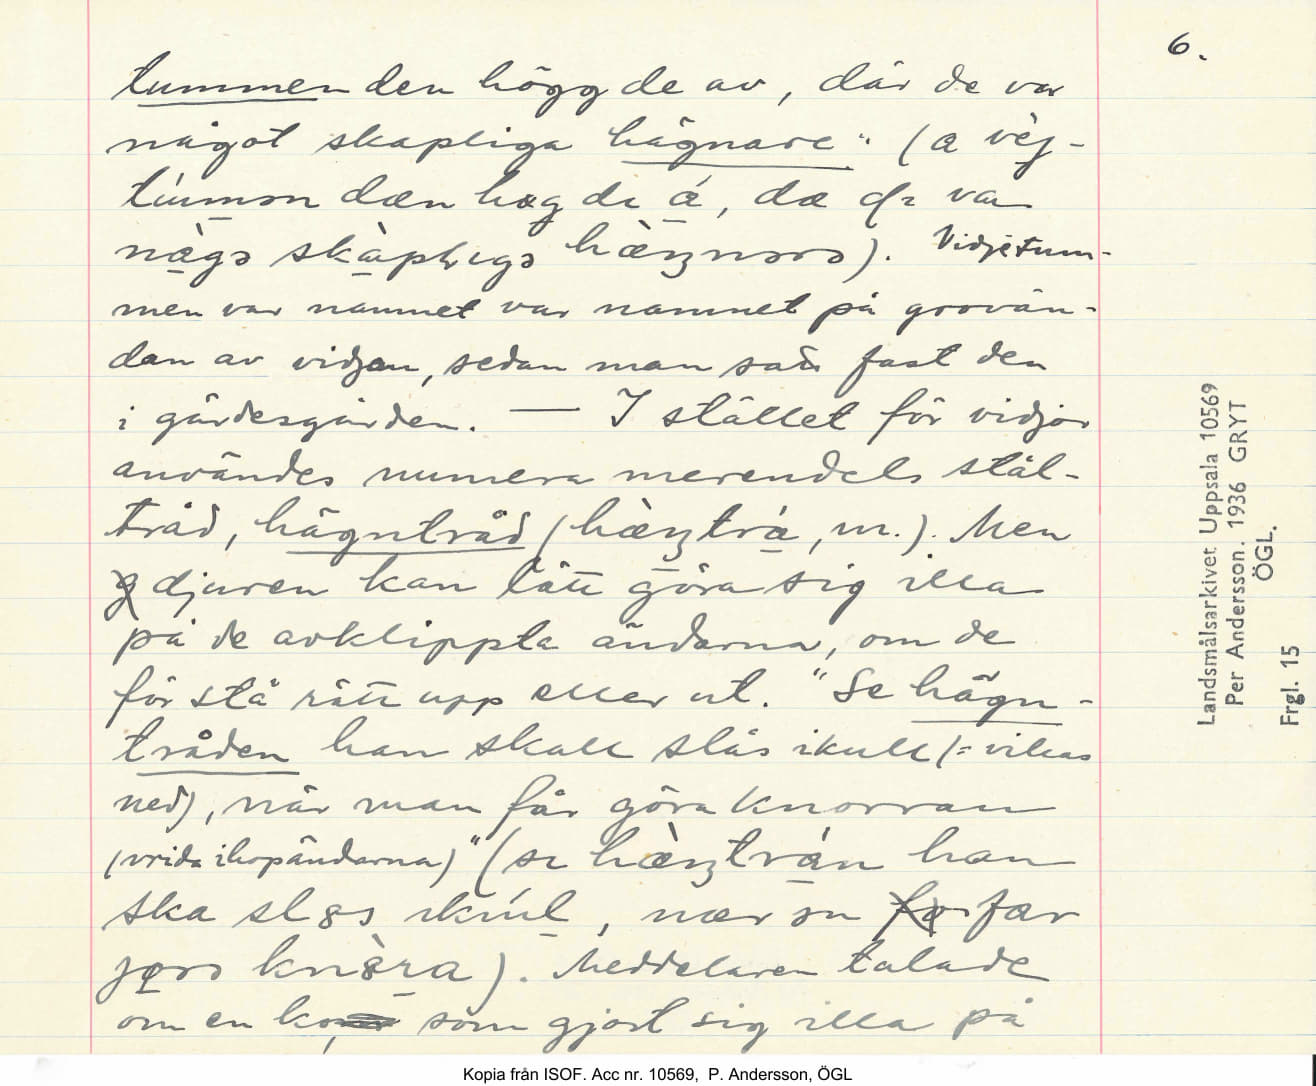 6.
tummen den högg de av, där de var
något skapliga hägnare". (a vèj-
túmən dæn hæg də á, dæ də va
nàgə skàplıgə hæ̀ŋnərə). Vidjetum-
men var namnet var namnet på grovän-
dan av vidjan, sedan man satt fast den
i gärdesgården. — I stället för vidjor
användes numera merendels stål-
tråd, hägntråd (hæ̀ŋtrá, m.). Men
djuren kan lätt göra sig illa
på de avklippta ändarna, om de
får stå rätt upp eller ut. "Se hägn-
tråden han skall slås ikull (= vikas
ned), när man får göra knorran
(vrida ihop ändarna)" (sə hæ̀ŋtrán han
ska sl8s ıkúl, nær ən fær
jərə kn8̀ra). Meddelaren talade
om en ko, som gjort sig illa på
Landsmålsarkivet Uppsala 10569
Per Andersson. 1936 GRYT
ÖGL.
Frgl. 15
Kopia från ISOF. Acc nr. 10569, P. Andersson, ÖGL